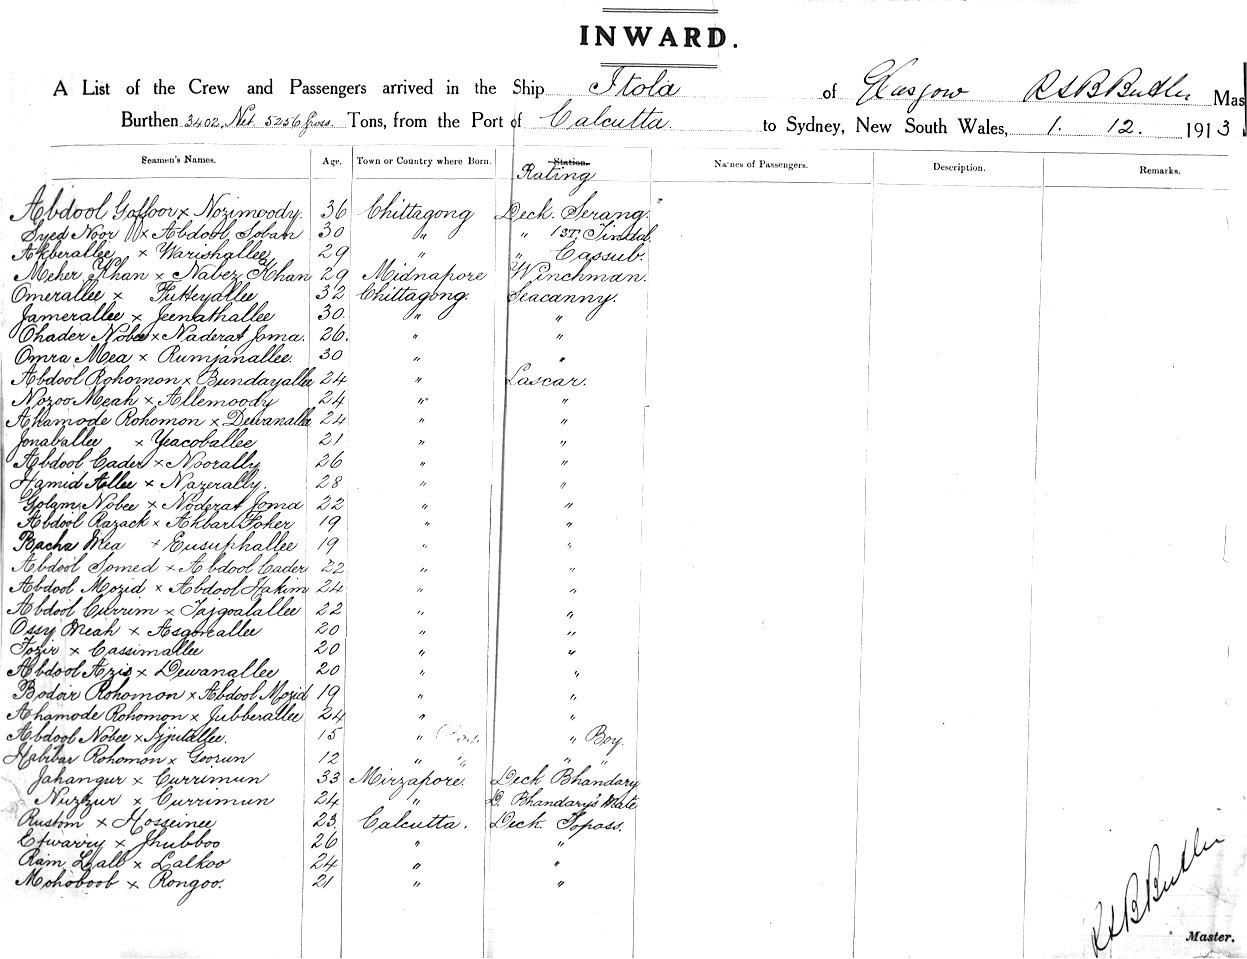 INWARD.
A List of the Crew and Passengers arrived in the Ship Itola of Glasgow R S B Butler Mas
Burthen 3402. Net. 5256 Gross. Tons, from the Port of Calcutta. to Sydney, New South Wales, 1. 12. 1913
Seamen's Names. Age. Town or Country where Born. Station. Names of Passengers. Description. Remarks.
Rating
Abdool Goffoor x Nozimoody. 36 Chittagong Deck. Serang.
Syed Noor x Abdool Soban 30 " " 1st. Tindal.
Akberallee x Warishallee 29 " " Cassub.
Meher Khan x Nabez Khan 29 Midnapore Winchman.
Omerallee x Futteyallee 32 Chittagong. Seacunny.
Jamerallee x Jeenathallee 30 " "
Chader Nobee x Naderat Joma. 26. " "
Omra Mea x Rumjanallee. 30 " "
Abdool Rohomon x Bundayallee 24 " Lascar.
Nozoo Meah x Allemoody 24 " "
Ahamode Rohomon x Dewanallee 24 " "
Jonaballee x Yeacoballee 21 " "
Abdool Cader x Noorally 26 " "
Hamid Allee x Nazerally. 28 " "
Golam Nobee x Noderat Joma 22 " "
Abdool Razack x Akbar Foker 19 " "
Bacha Mea x Eusuphallee 19 " "
Abdool Somed x Abdool Cader 22 " "
Abdool Mozid x Abdool Hakim 24 " "
Abdool Currim x Tajgoalallee 22 " "
Ossy Meah x Asgorallee 20 " "
Fozir x Cassimallee 20 " "
Abdool Azis x Dewanallee 20 " "
Bodoir Rohomon x Abdool Mozid 19 " "
Ahamode Rohomon x Jubberallee 24 " "
Abdool Nobee x 15 " " Boy.
Habibar Rohomon x Goorun 12 " " "
Jahangur x Currimun 33 Mirzapore. Deck Bhandary
Nuzzur x Currimun 24 " D. Bhandary's Mate
Rustom x Hosseinee 23. Calcutta. Deck. Topass.
Etwarry x Jhubboo 26 " "
Ram Lall x Lalkoo 24 " "
Mohoboob x Rongoo. 21 " "
R S B Butler
Master.